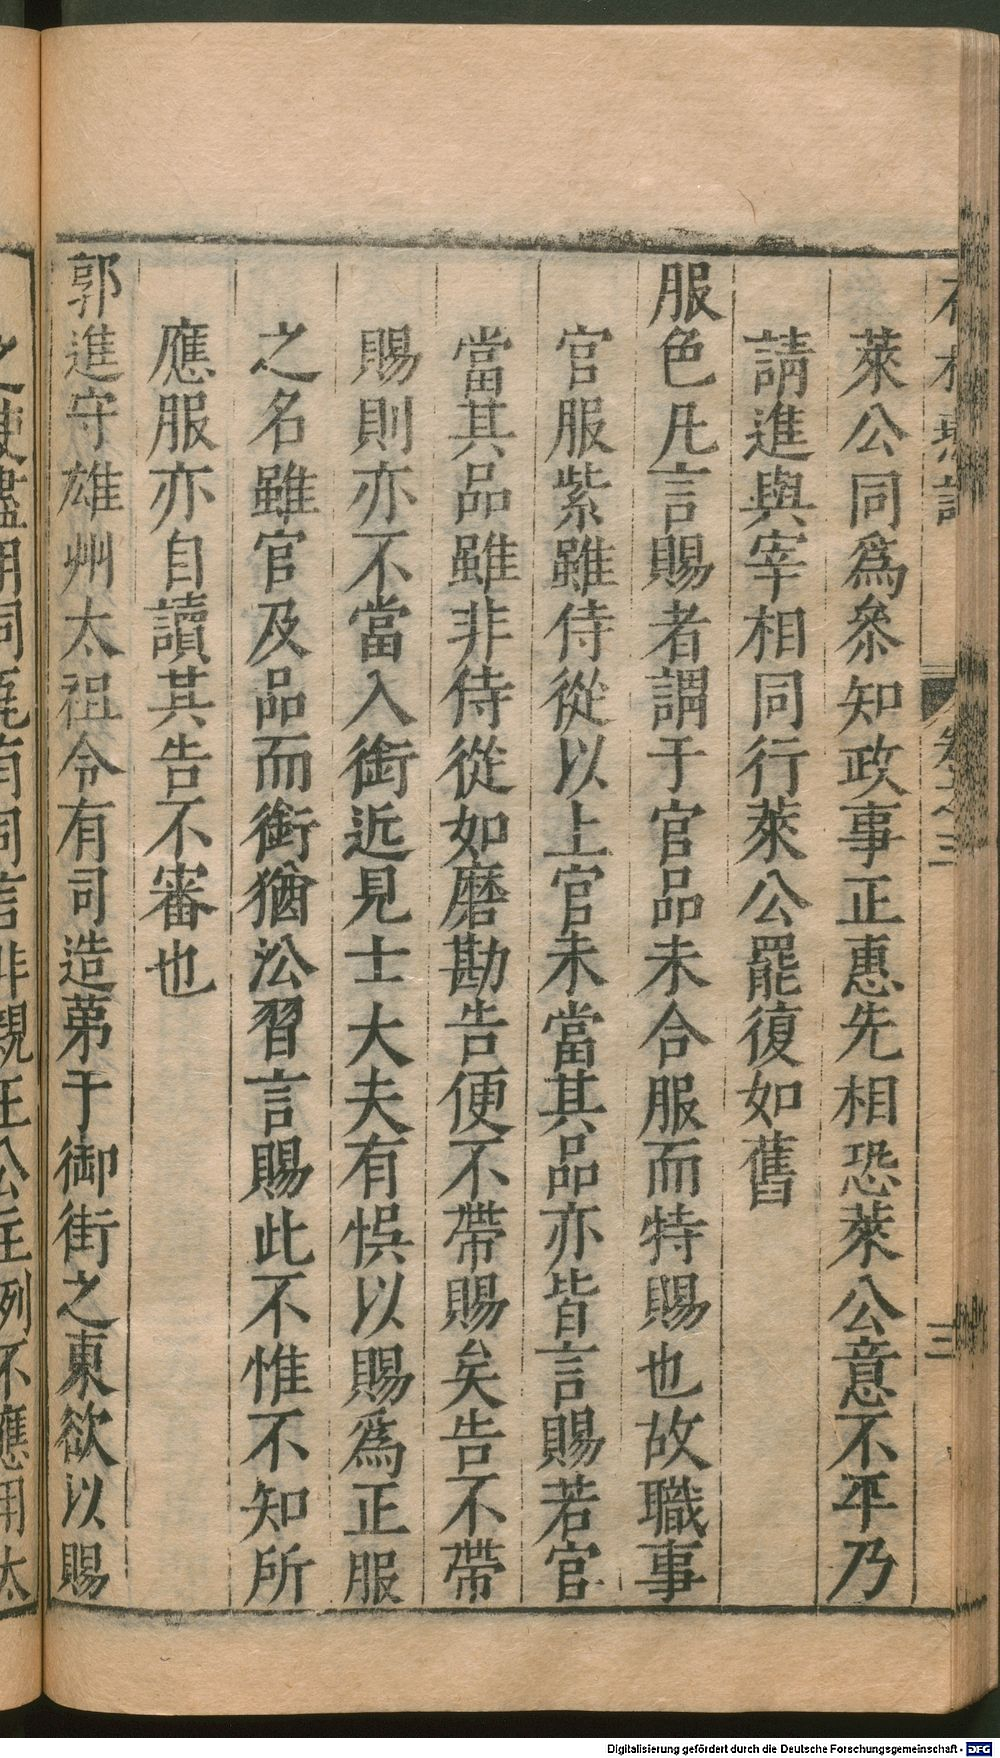 石林燕語 卷之三 三
萊公同爲叅知政事正惠先相恐萊公意不平乃
請進與宰相同行萊公罷復如舊
服色凡言賜者謂于官品未合服而特賜也故職事
官服紫雖侍從以上官未當其品亦皆言賜若官
當其品雖非侍從如磨勘告便不帶賜矣告不帶
賜則亦不當入銜近見士大夫有悞以賜爲正服
之名雖官及品而銜猶㳂習言賜此不惟不知所
應服亦自讀其告不審也
郭進守雄州太祖令有司造第于御街之東欲以賜
之使盡用同瓦有司言非親王公主列不應用太
Digitalisierung gefördert durch die Deutsche Forschungsgemeinschaft - DFG